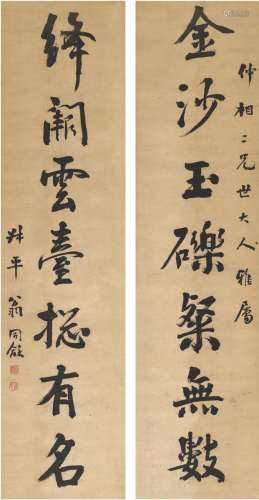 仲相二兄世大人雅屬
金沙玉礫粲無數
絳闕雲臺揔有名
叔平翁同龢